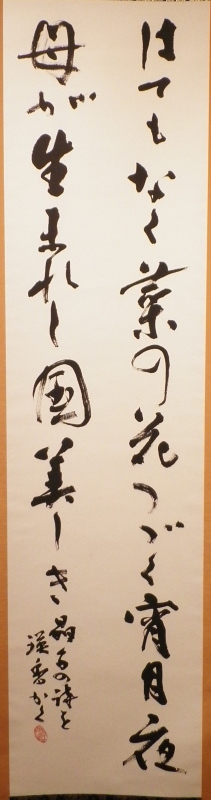 はてもなく菜の花つづく宵月夜
母が生まれし国美しき
晶子の詩を
瑛香かく